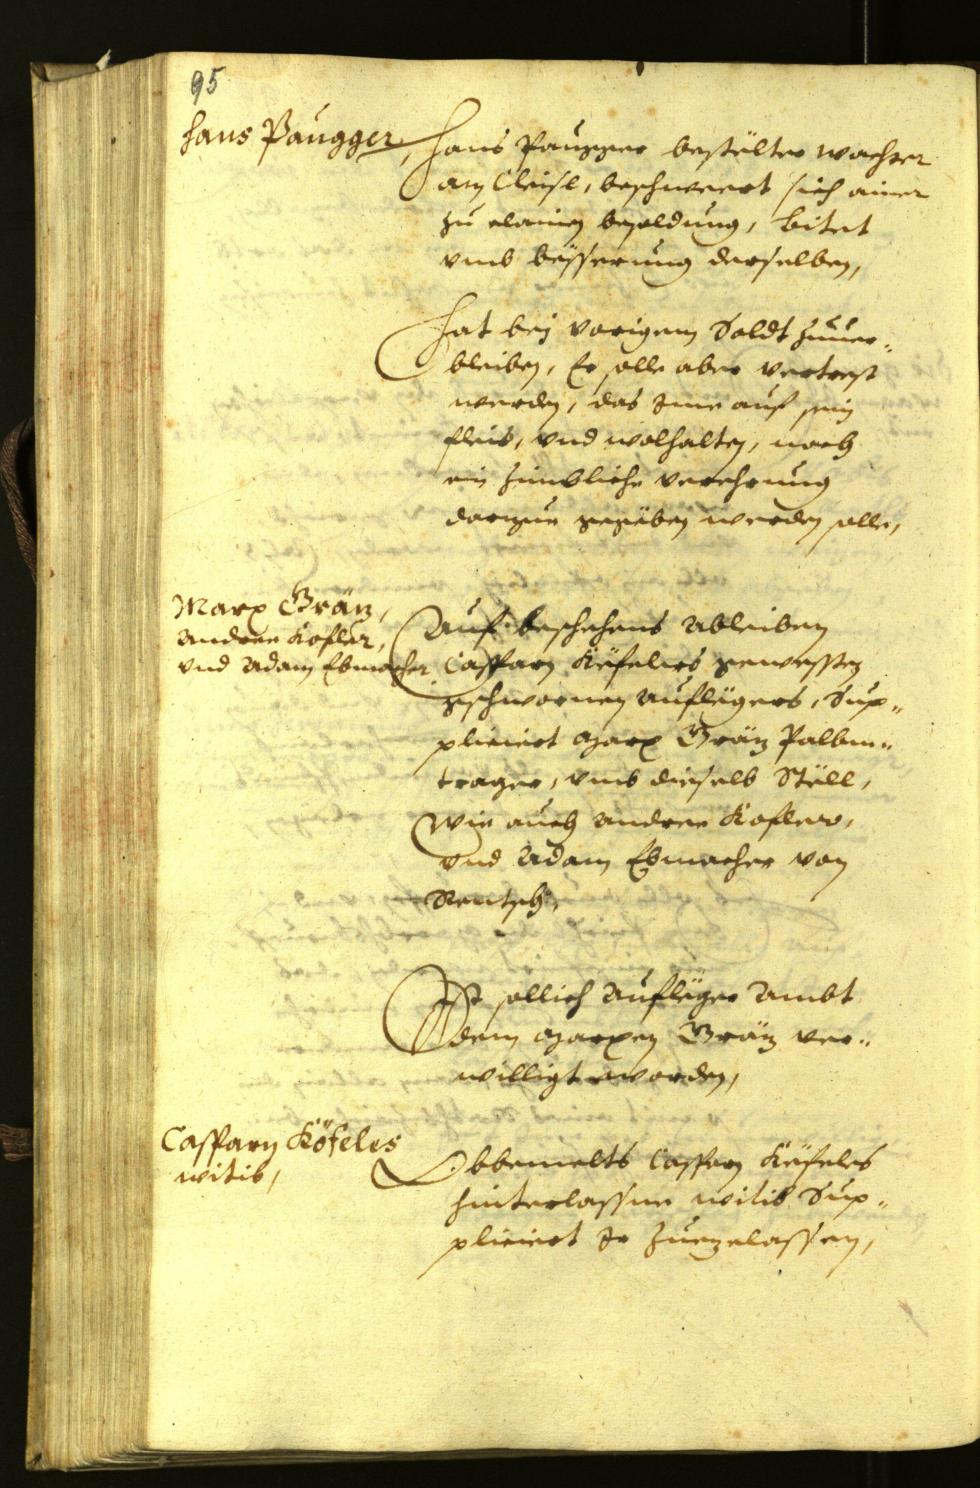 95
Hans Paugger,
Hans Paugger bestëlter wachter
am Cleisl, beschwerrt sich ainer
zu clainen besoldung, bitet
vmb bësserung derselben,
Hat bej vorigem Soldt zuuer„
bleiben, Er solle aber vertrest
werden, das Ime auf sein
fleis, vnd wolhalten, noch
ein zimbliche verehrung
darzue gegëben werden solle,
Marx Gräz,
Andree Kofler,
vnd Adam Ebmacher
Auf beschehens Ableiben
Casparn Köfeles gewessten
geschwornen Auflëgers, Sup„
pliciert Marx Gräz Palbm„
trager, vmb dieselb Stëll,
Wie auch Andree Kofler,
vnd Adam Ebmacher von
Rentsch,
Ist sollich Auflëger Ambt
dem Marxen Gräz ver„
willigt worden,
Casparn Köfeles
witib,
Obbemelts Casparn Köfeles
hinterlassne witib Sup„
pliciert Ir zuezelassen,